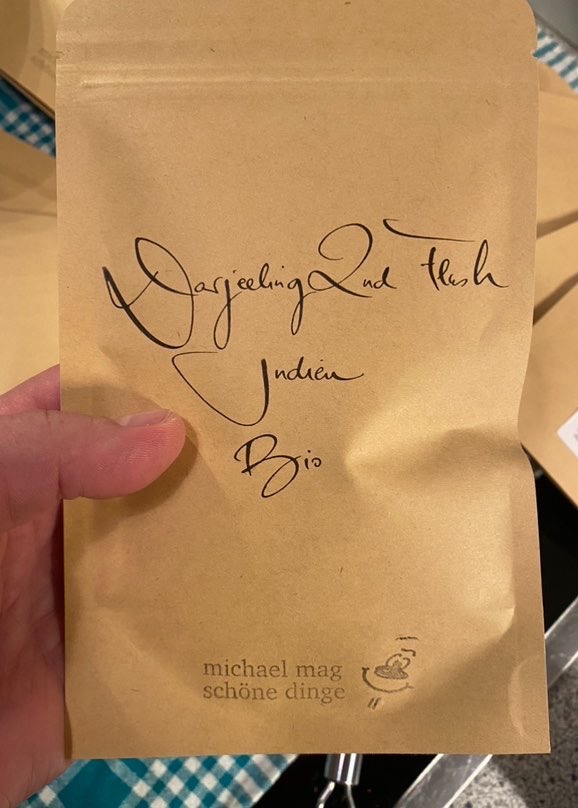 Darjeeling 2nd Flush
Indien
Bio
michael mag
schöne dinge